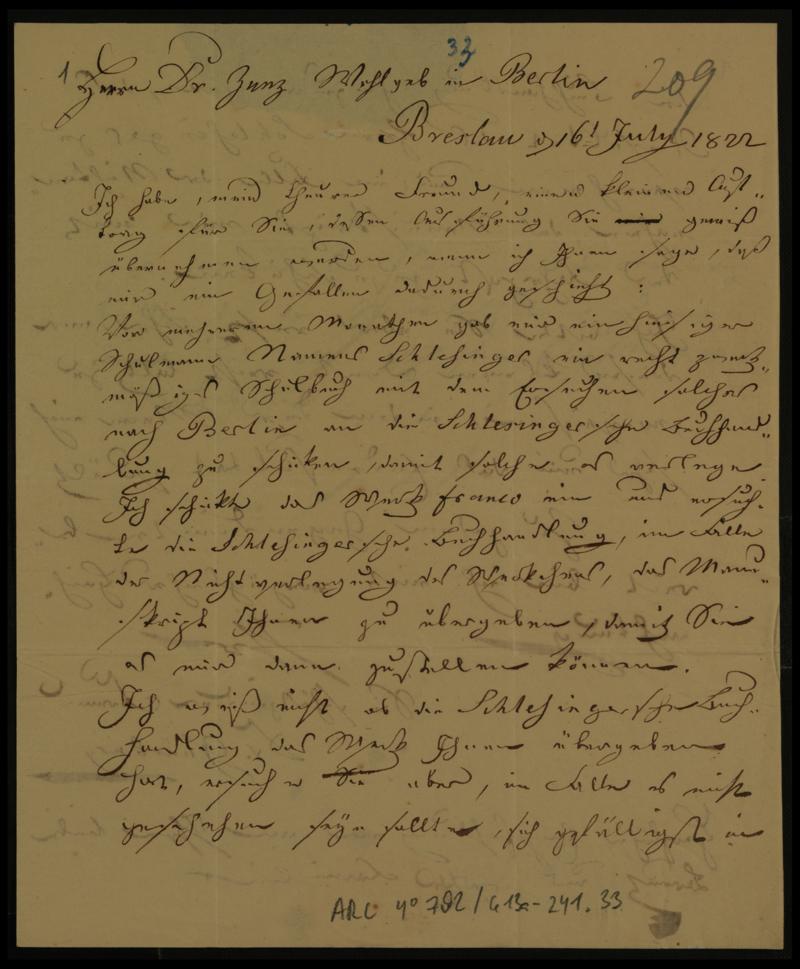 33
1 Herrn Dr. Zunz Wohlgeb in Berlin 209
Breslau d 16t July 1822
Ich habe, mein theurer Freund, einen kleinen Auf-
trag für Sie, dessen Ausführung Sie gewiß
übernehmen werden, wenn ich Ihnen sage, daß
mir ein Gefallen dadurch geschieht:
Vor mehreren Monathen gab mir ein hiesiger
Schulmann Namens Schlesinger ein recht zweck-
mäßiges Schulbuch mit dem Ersuchen solches
nach Berlin an die Schlesingersche Buchhand-
lung zu schicken, damit solche es verlege
Ich schickte das Werk franco ein und ersuch-
te die Schlesingersche Buchhandlung, im Falle
der Nichtverlegung des Werkchens, das Manu-
skript Ihnen zu übergeben, damit Sie
es mir dann zustellen können.
Ich weiß nicht ob die Schlesingersche Buch-
handlung das Werk Ihnen übergeben
hat, ersuche Sie aber, im Falle es nicht
geschehen seyn sollte, sich gefälligst in
ARC 4° 792/G13a-241.33